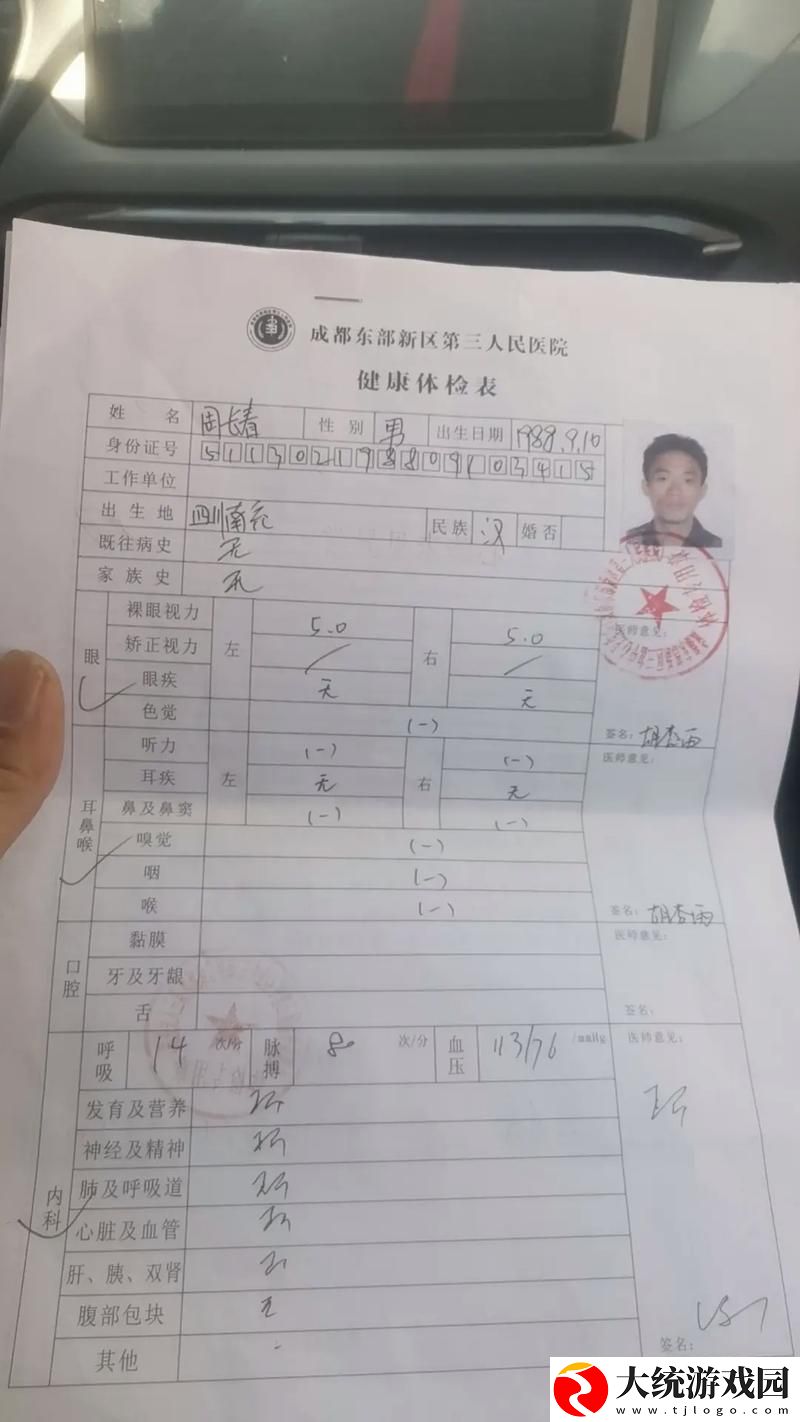 成都东部新区第三人民医院
健康体检表
姓名 周长春 性别 男 出生日期 1988.9.10
身份证号 511302198809103415
工作单位
出生地 四川南充 民族 汉 婚否
既往病史 无
家族史 无
眼 裸眼视力 左 5.0 右 5.0 医师意见:
矫正视力 / /
眼疾 无 无
色觉 (-) 签名: 胡杏雨
耳鼻喉 听力 左 (-) 右 (-) 医师意见:
耳疾 无 无
鼻及鼻窦 (-) (-)
嗅觉 (-)
咽 (-)
喉 (-) 签名: 胡杏雨
口腔 黏膜 医师意见:
牙及牙龈
舌 签名:
内科 呼吸 14 次/分 脉搏 80 次/分 血压 113/76 /mmHg 医师意见:
发育及营养
神经及精神
肺及呼吸道
心脏及血管
肝、胰、双肾
腹部包块 无
其他 -
签名:
大统游戏园
www.tjlogo.com